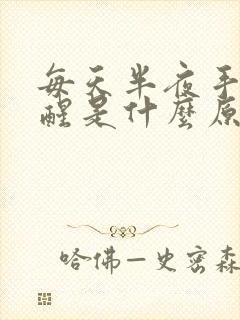 每天半夜手
醒是什麼原
哈佛—史密森